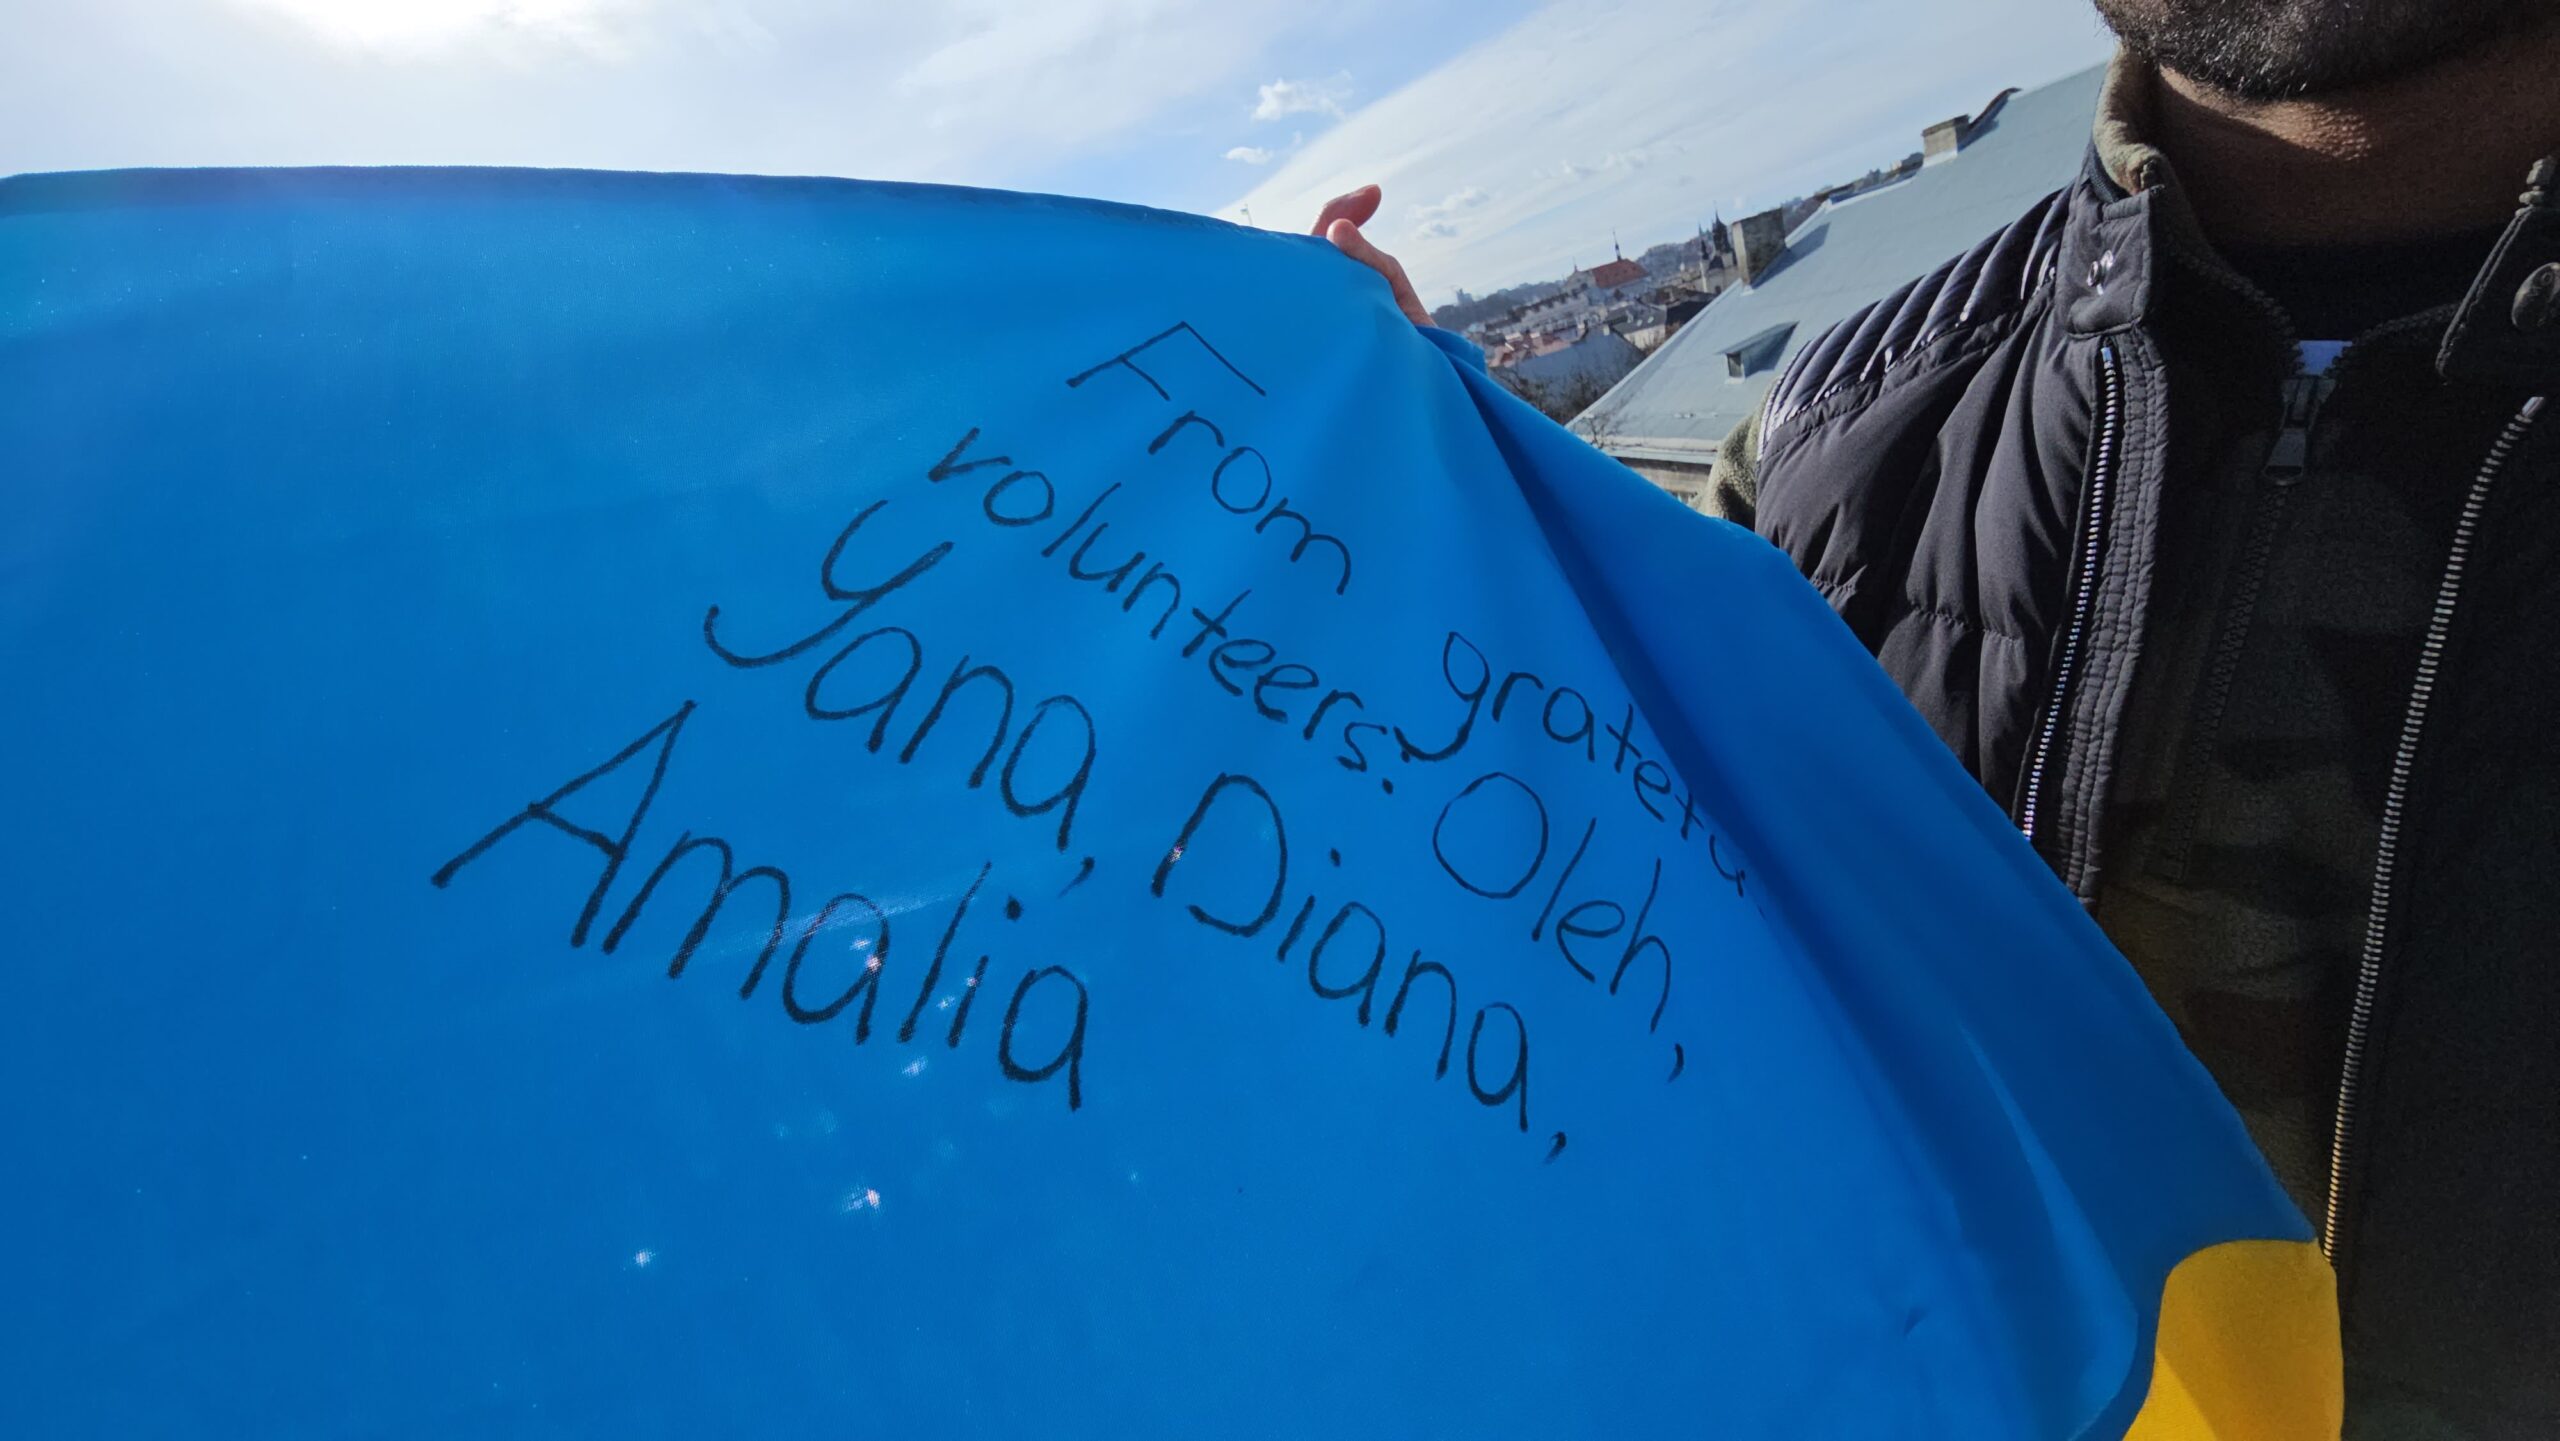 From gratefu
volunteers: Oleh,
Yana, Diana,
Amalia